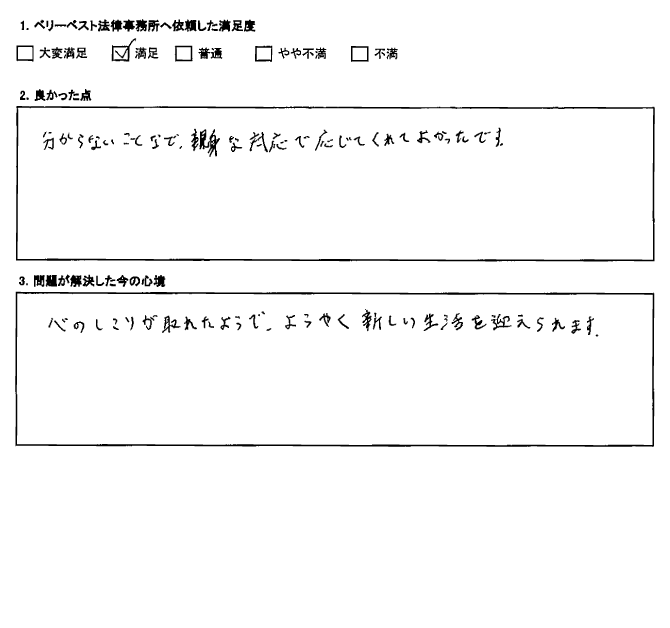 1. ベリーベスト法律事務所へ依頼した満足度
□ 大変満足 ☑ 満足 □ 普通 □ やや不満 □ 不満
2. 良かった点
分からないことなど、親身な対応で応じてくれてよかったです。
3. 問題が解決した今の心境
心のしこりが取れたようで、ようやく新しい生活を迎えられます。